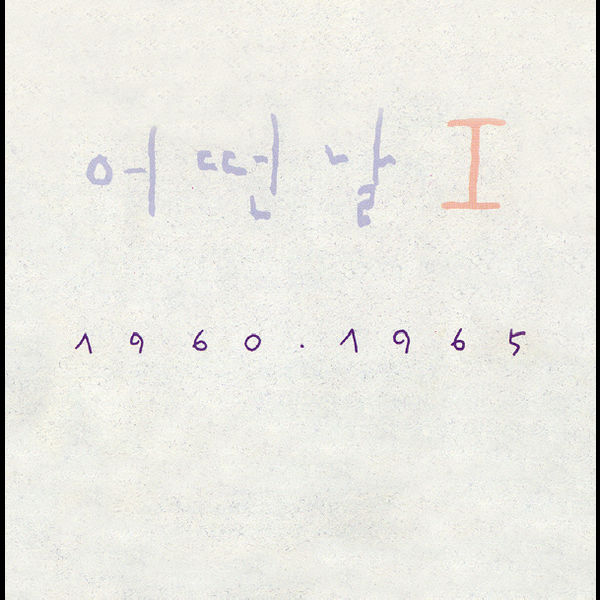 어떤날 I
1960.1965